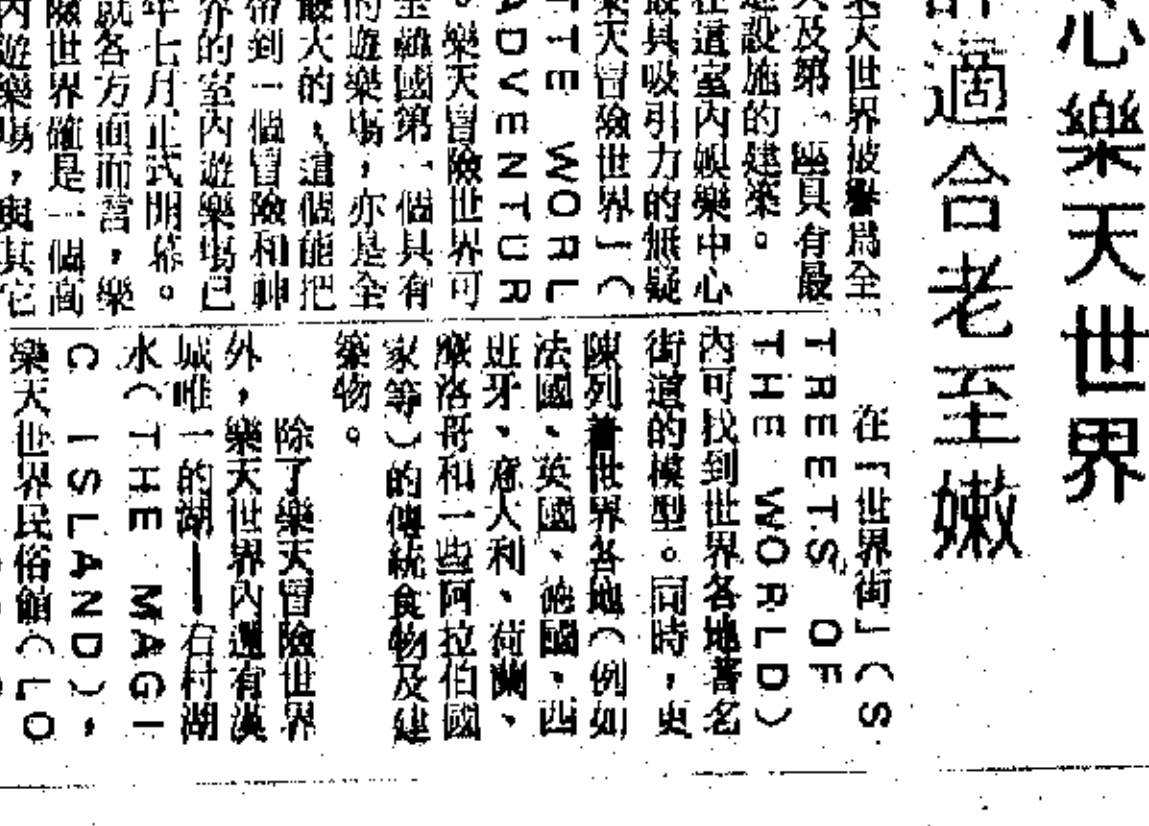 心樂天世界
適合老至嫩
樂天世界被譽為全
及第一座具有最
設施的建築。
在這室內娛樂中心
最具吸引力的無疑
樂天冒險世界」（
TTE WORL
ADVENTUR
。樂天冒險世界可
全韓國第一個具有
的遊樂場，亦是全
最大的，這個能把
帶到一個冒險和神
界的室內遊樂場已
年七月正式開幕。
就各方面而言，樂
險世界確是一個高
內遊樂場，與其它
在「世界街」（S
TREETS OF
THE WORLD）
內可找到世界各地著名
街道的模型。同時，更
陳列着世界各地（例如
法國、英國、德國、西
班牙、意大利、荷蘭、
摩洛哥和一些阿拉伯國
家等）的傳統食物及建
築物。
除了樂天冒險世界
外，樂天世界內還有漢
城唯一的湖——石村湖
水（THE MAGI
C ISLAND），
樂天世界民俗館（LO